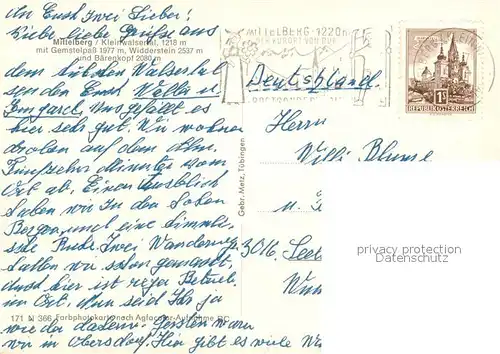 An Euch Zwei Lieben!
Liebe liebe Grüsse aus
Mittelberg / Kleinwalsertal, 1218 m
mit Gemstelpaß 1977 m, Widderstein 2537 m
und Bärenkopf 2080 m
dem schönen Walsertal
senden Euch Willi u.
Irmgard. Uns gefällt es
hier sehr gut. Wir wohnen
droben auf dem
Fünfzehn Minuten vom
Ort ab. Einen Ausblick
haben wir in den hohen
Bergen und eine himmli-
sche Ruhe. Zwei Wanderung.
haben wir schon gemacht,
hier ist reger Betrieb
im Ort. Nun seid Ihr ja
171 N 366 Farbphotokarte nach Agfacolor-Aufnahme
wieder daheim. Gestern waren
wir in Oberstdorf. Hier gibt es viele
Gebr. Metz, Tübingen
MITTELBERG · 1220 m
DER KURORT VON
REPUBLIK ÖSTERREICH
1S
Deutschland
Herrn
Willi
u.
3016 See
privacy protection